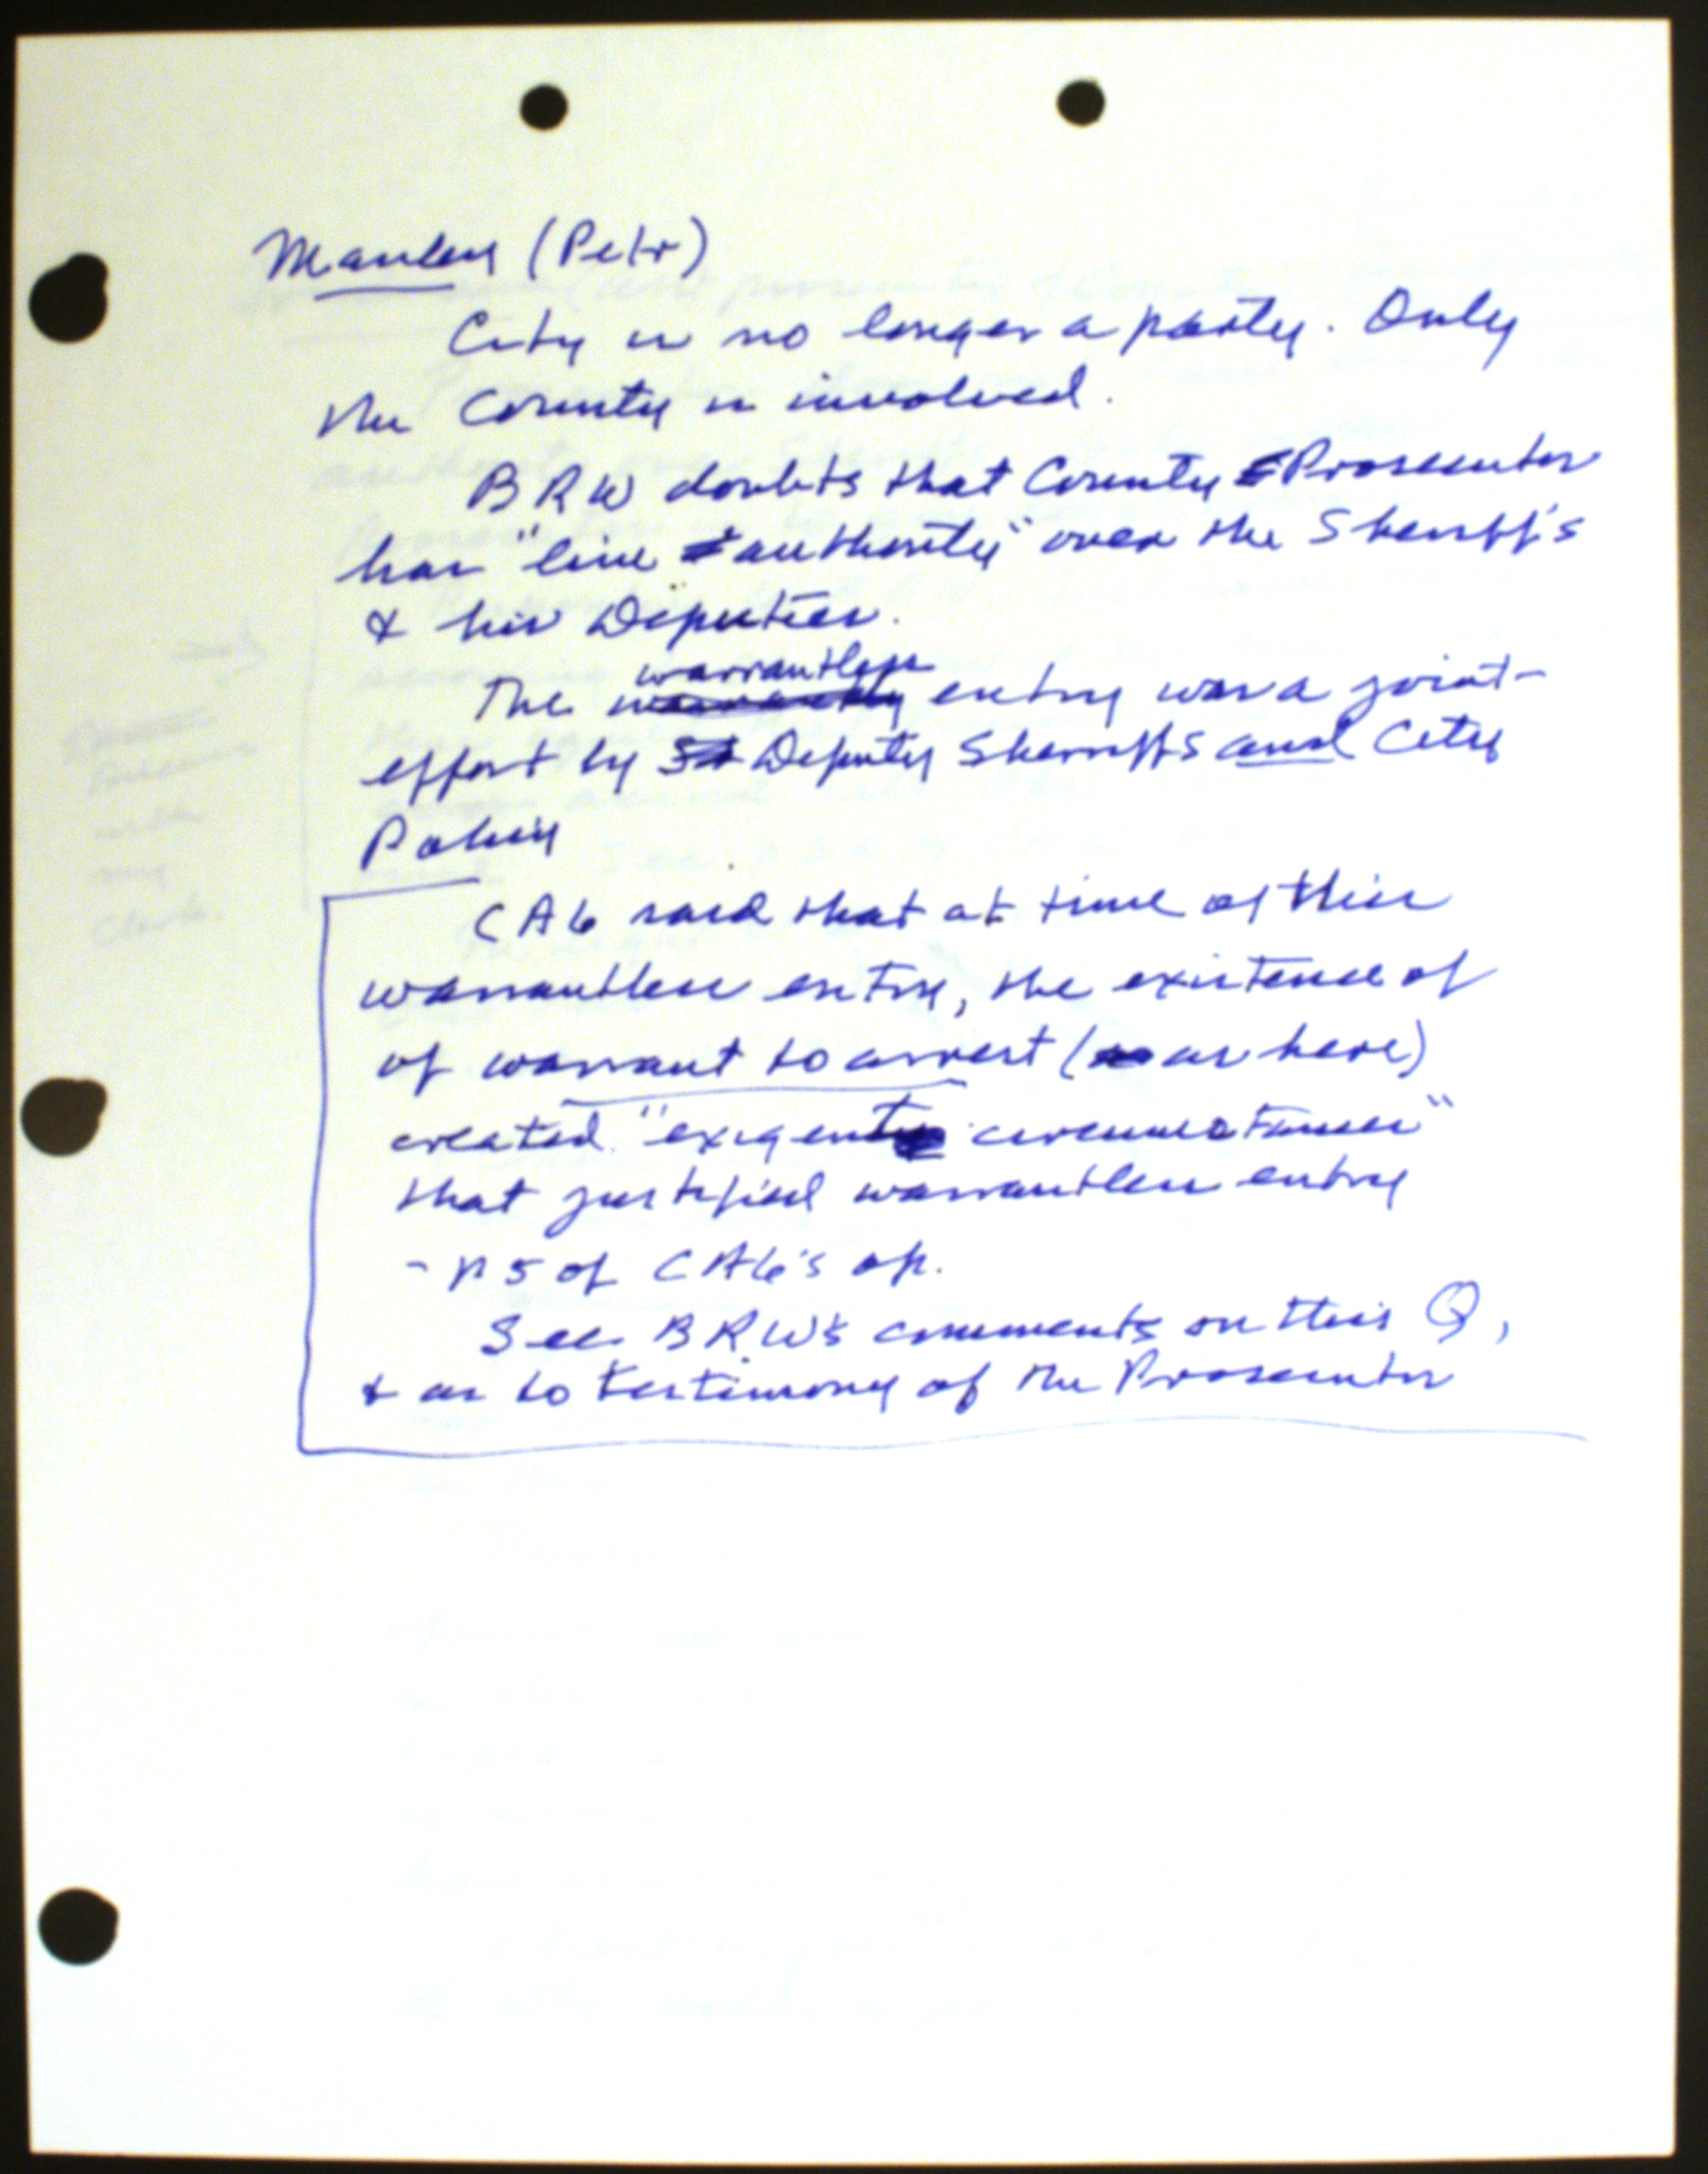 Manley (Petr)
City is no longer a party. Only
the County is involved.
BRW doubts that County Prosecutor
has "line authority" over the Sheriff's
& his Deputies.
warrantless
The entry was a joint-
effort by Deputy Sheriffs and City
Police
CA6 said that at time of this
warrantless entry, the existence of
of warrant to arrest (as here)
created "exigent circumstances"
that justified warrantless entry
- p 5 of CA6's op.
See BRW's comments on this Q,
& as to testimony of the Prosecutor